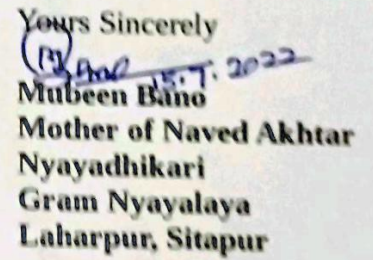 Yours Sincerely
15.7.2022
Mubeen Bano
Mother of Naved Akhtar
Nyayadhikari
Gram Nyayalaya
Laharpur, Sitapur